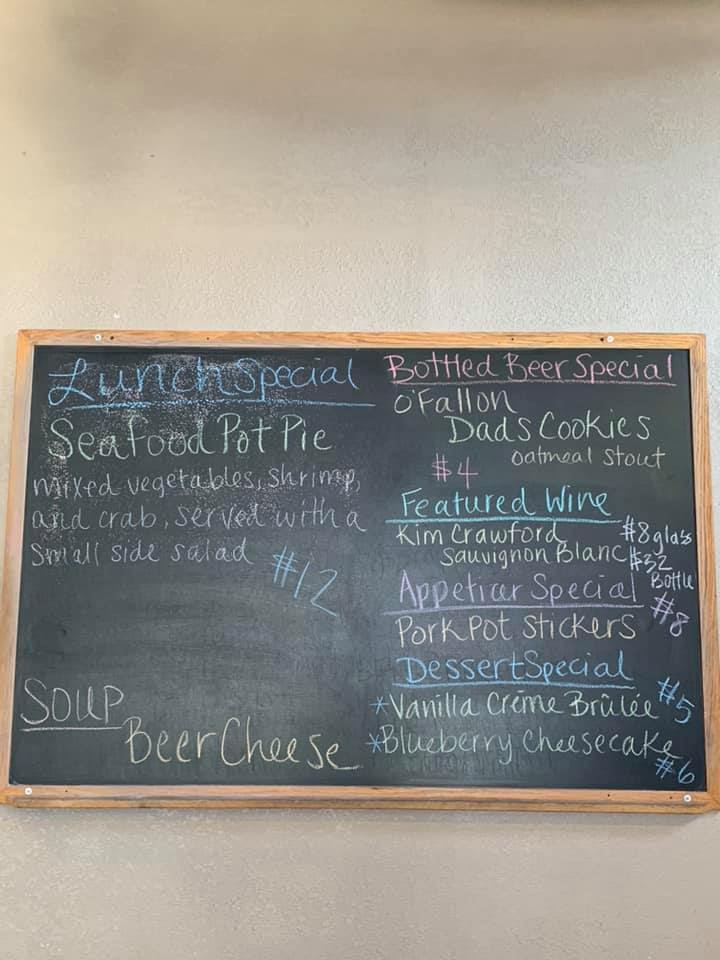 Lunch Special
Seafood Pot Pie
mixed vegetables, shrimp,
and crab, served with a
small side salad
$12
Soup
Beer Cheese
Bottled Beer Special
O'Fallon
Dads Cookies
oatmeal stout
$4
Featured Wine
Kim Crawford $8 glass
Sauvignon Blanc $32
Bottle
Appetizer Special
$8
Pork Pot Stickers
Dessert Special
*Vanilla Crème Brûlée $5
*Blueberry Cheesecake
$6